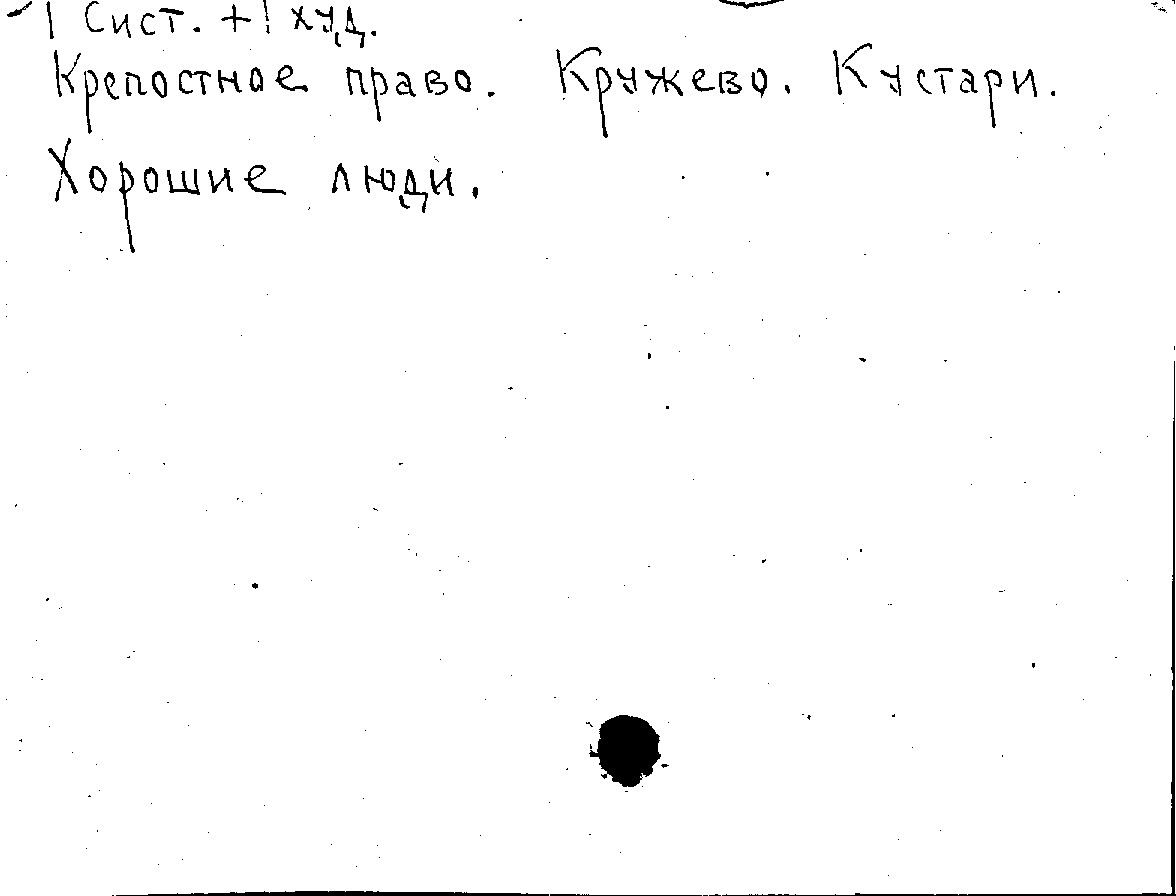 1 Сист. + 1 худ.
Крепостное право. Кружево. Кустари.
Хорошие люди.